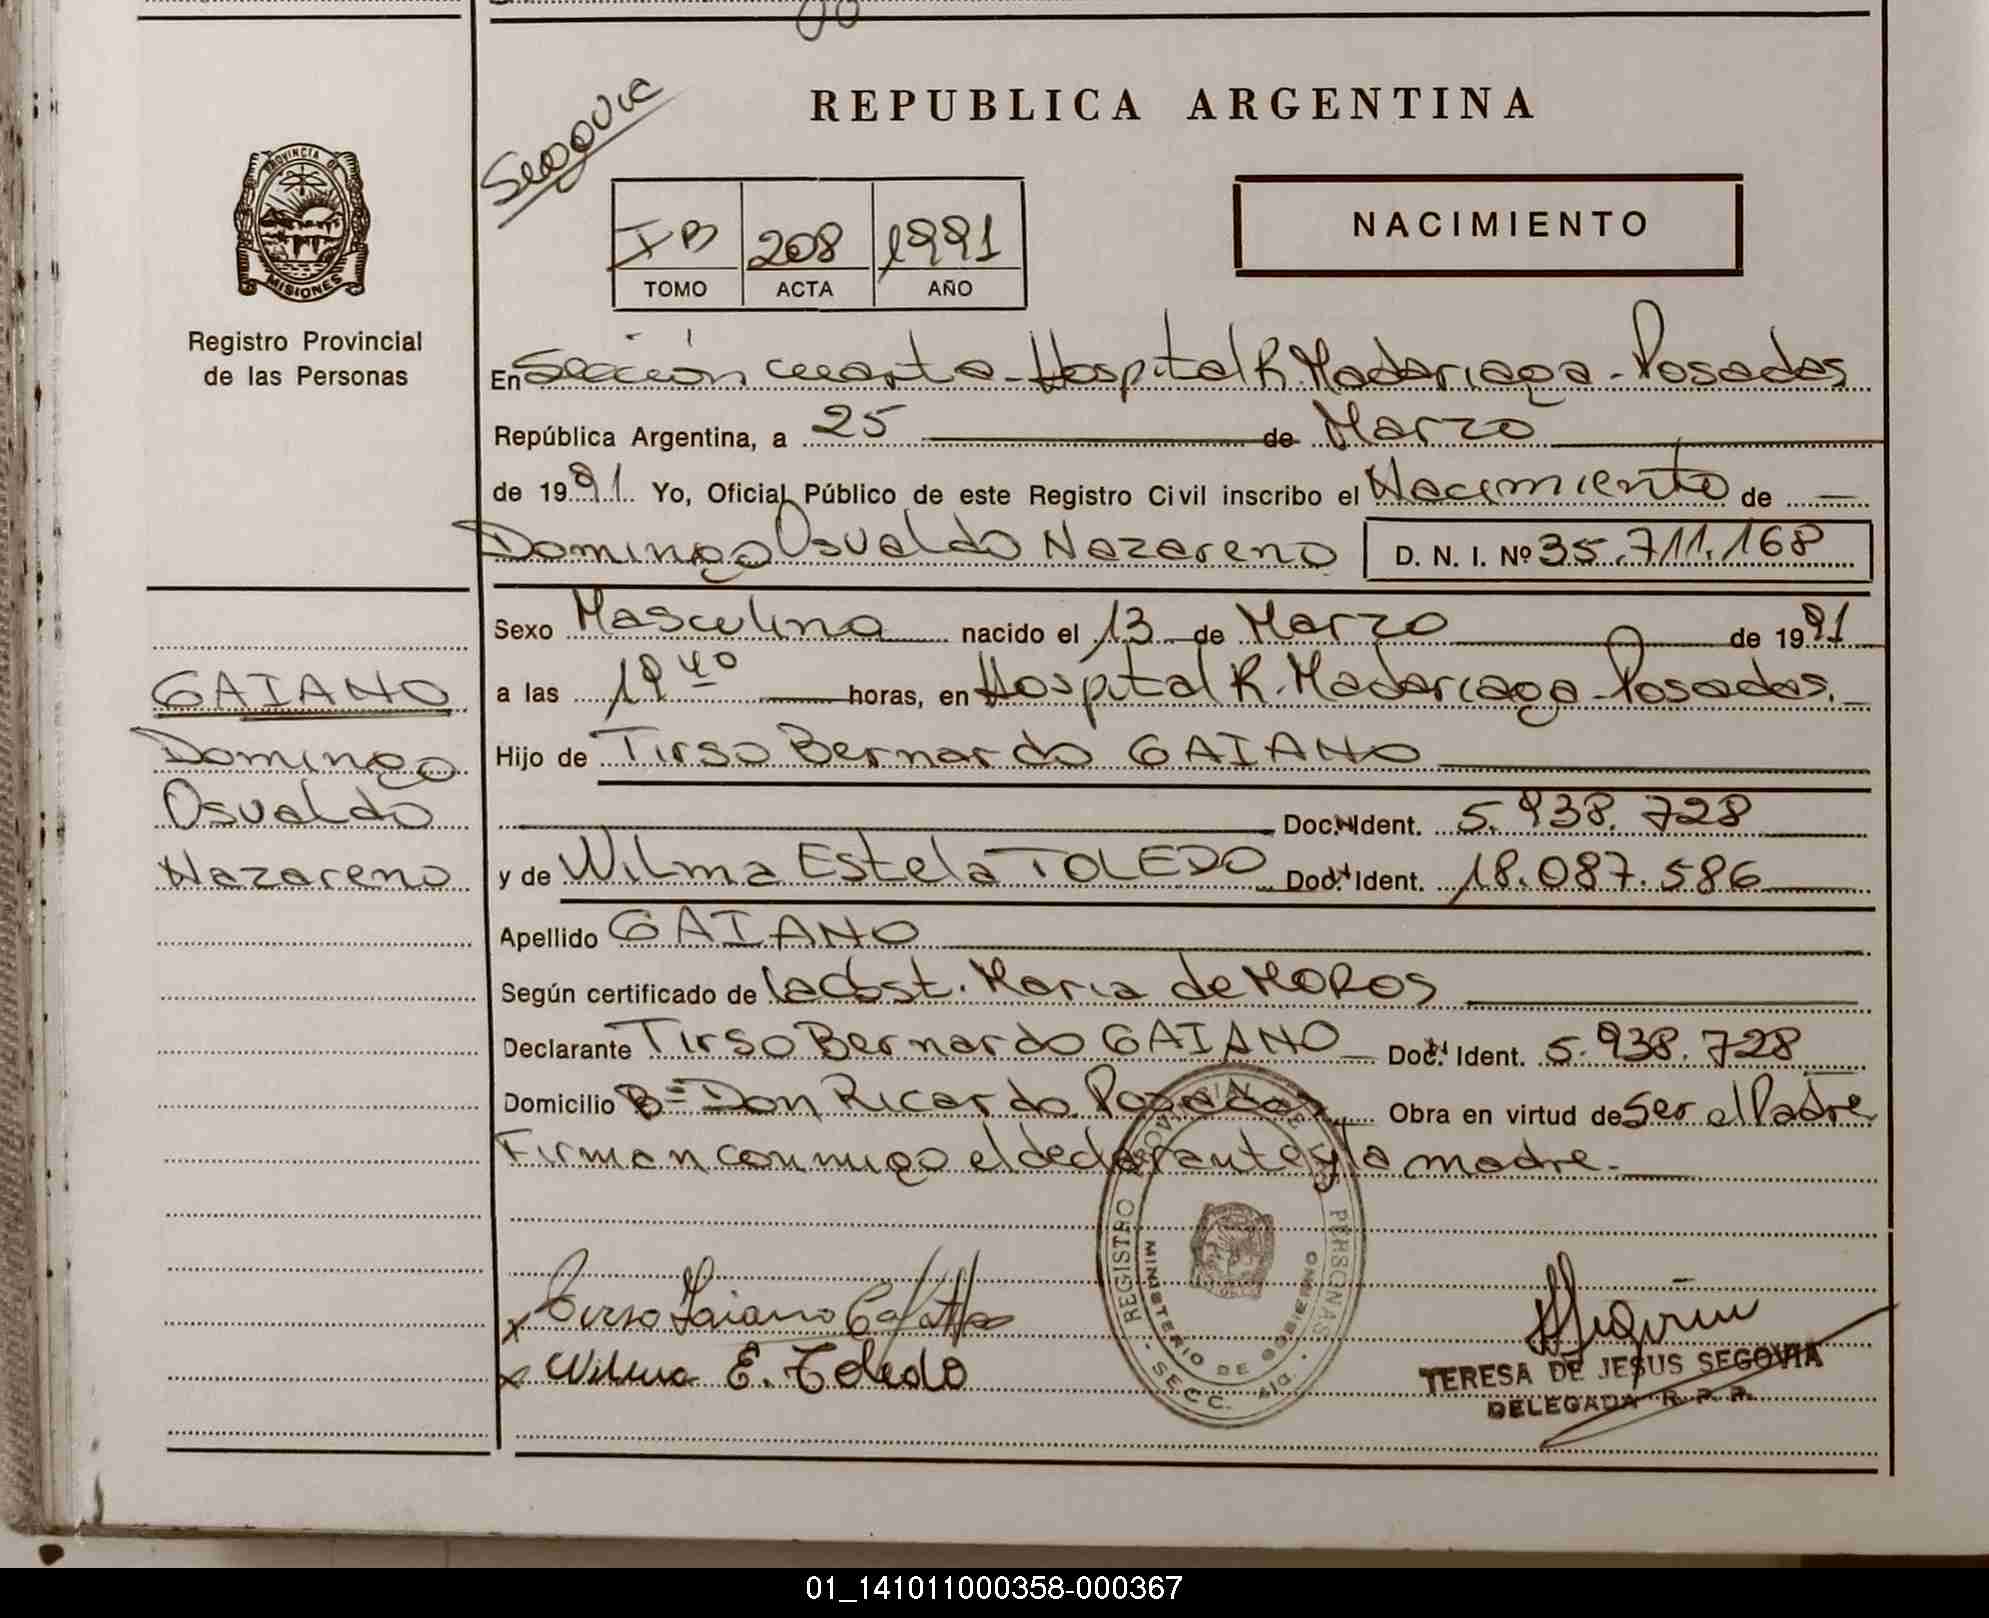 REPUBLICA ARGENTINA
Segovia
PROVINCIA DE
MISIONES
Registro Provincial
de las Personas
I B 208 1991
TOMO ACTA AÑO
NACIMIENTO
En Sección cuarta - Hospital R. Madariaga - Posadas
República Argentina, a 25 de Marzo
de 1991 Yo, Oficial Público de este Registro Civil inscribo el Nacimiento de
Domingo Osvaldo Nazareno D. N. I. Nº 35.711.168
Sexo Masculino nacido el 13 de Marzo de 1991
a las 19 40 horas, en Hospital R. Madariaga - Posadas.
Hijo de Tirso Bernardo GAIANO
Doc. Ident. 5.938.728
y de Wilma Estela TOLEDO Doc. Ident. 18.087.586
Apellido GAIANO
Según certificado de la Obst. Maria de MOROS
Declarante Tirso Bernardo GAIANO Doc. Ident. 5.938.728
Domicilio Bº Don Ricardo Posadas Obra en virtud de ser el Padre
Firman conmigo el declarante y la madre.
GAIANO
Domingo
Osvaldo
Nazareno
x Tirso Gaiano
x Wilma E. Toledo
REGISTRO PROVINCIAL DE LAS PERSONAS
MINISTERIO DE GOBIERNO
SECC. 4ta.
TERESA DE JESUS SEGOVIA
DELEGADA R. P. P.
01_141011000358-000367